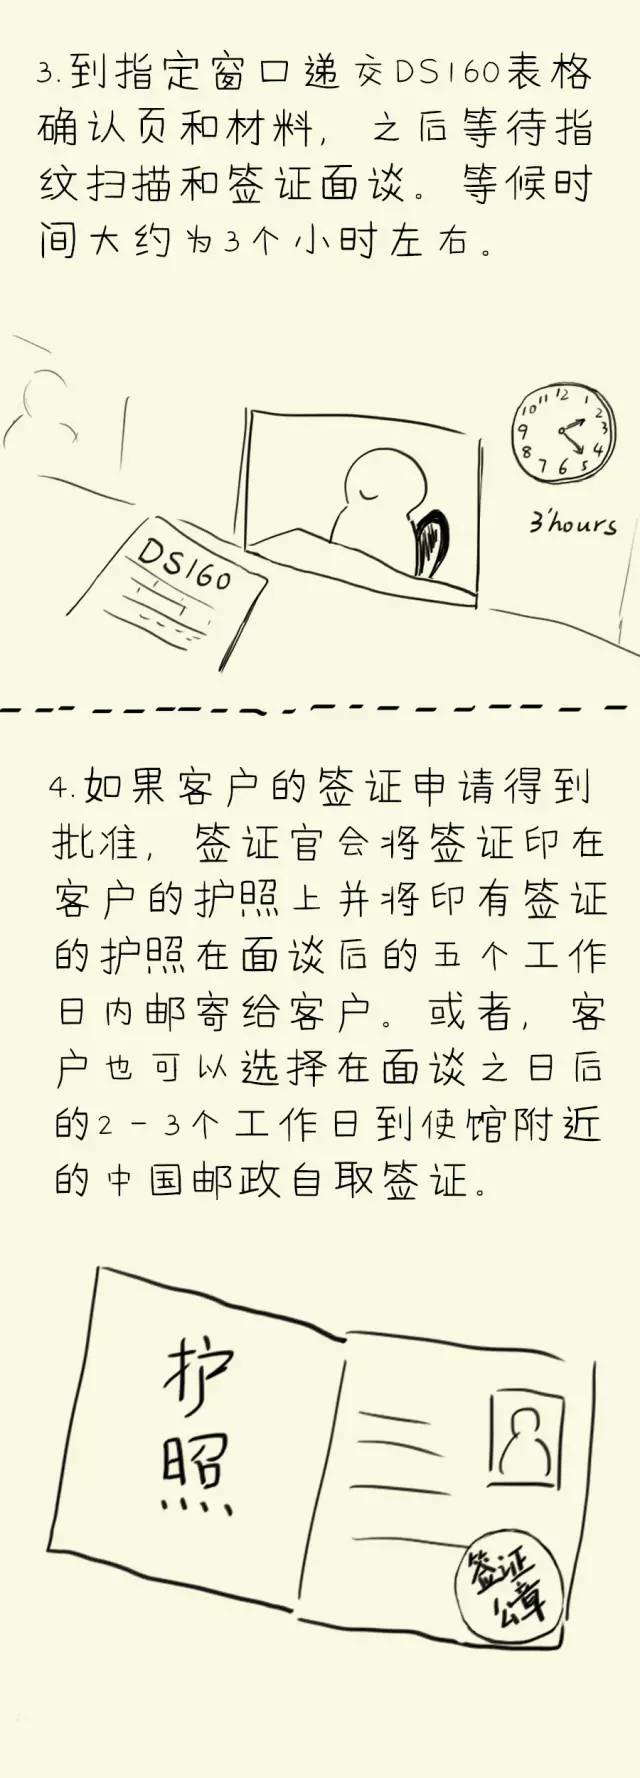 3.到指定窗口递交DS160表格
确认页和材料，之后等待指
纹扫描和签证面谈。等候时
间大约为3个小时左右。
10 11 12 1 2 3 4 5 6 7 8 9
3'hours
DS160
4.如果客户的签证申请得到
批准，签证官会将签证印在
客户的护照上并将印有签证
的护照在面谈后的五个工作
日内邮寄给客户。或者，客
户也可以选择在面谈之日后
的2-3个工作日到使馆附近
的中国邮政自取签证。
护
照
签证
公章